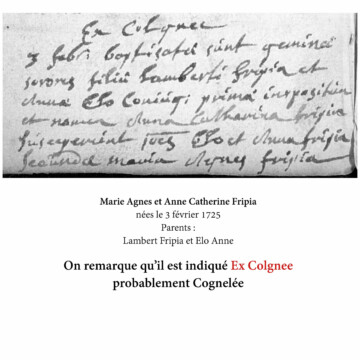 Ex Colgnee
3 feb: baptisatae sunt geminae
sorores filiae Lamberti Fripia et
Anna Elo coniug: prima impositum
et nomen Anna Catharina fripia
susceperunt Elo et Anna fripia
secunda maria Agnes fripia
Marie Agnes et Anne Catherine Fripia
nées le 3 février 1725
Parents :
Lambert Fripia et Elo Anne
On remarque qu'il est indiqué Ex Colgnee
probablement Cognelée